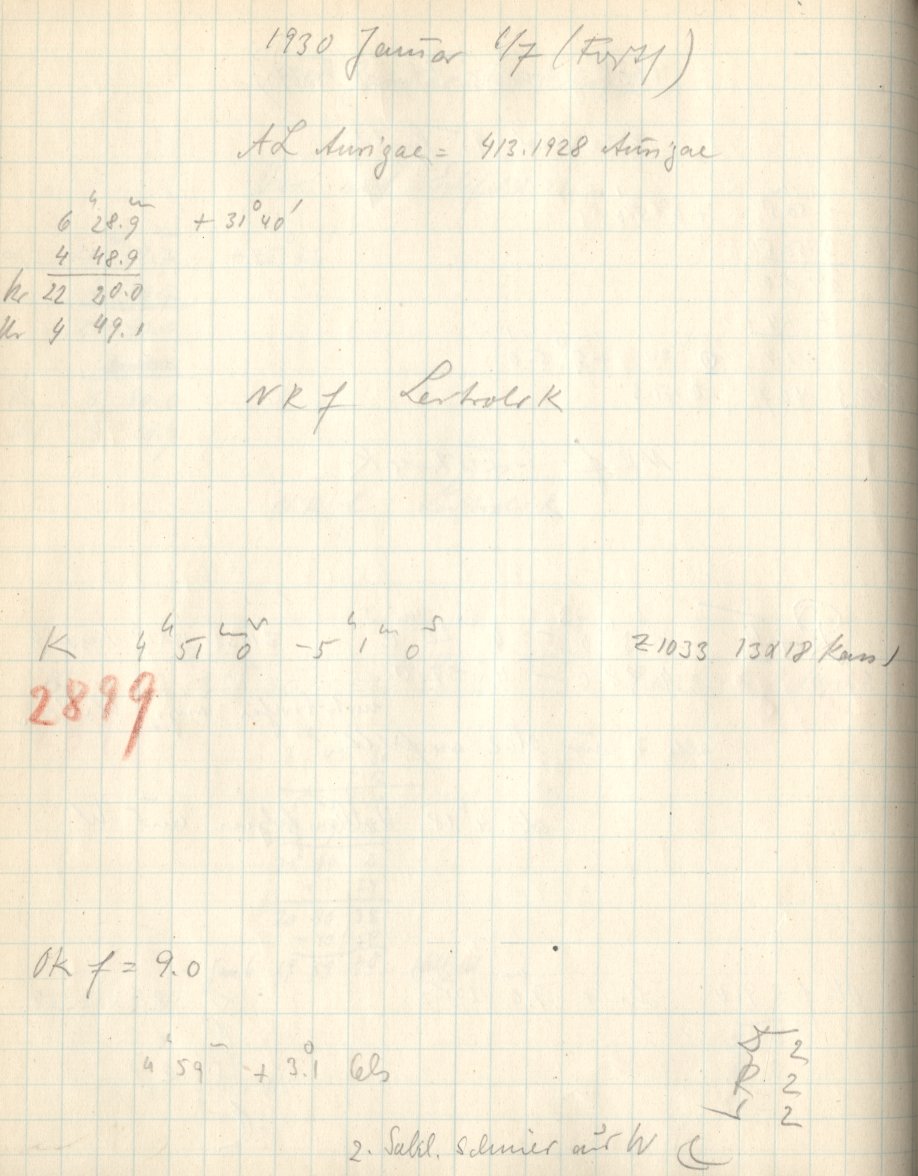 1930 Januar 6/7 (Forts)
AL Aurigae = 413.1928 Aurigae
6ʰ 28.9ᵐ + 31° 40′
4 48.9
Kr 22 20.0
Ur 4 49.1
NR f
K 4ʰ 51ᵐ 0ˢ -5ʰ 1ᵐ 0ˢ Z1033 13x18 Kass
2899
OK f = 9.0
4ʰ 59ᵐ + 3.°1
2
R 2
2
2. schmier auf W